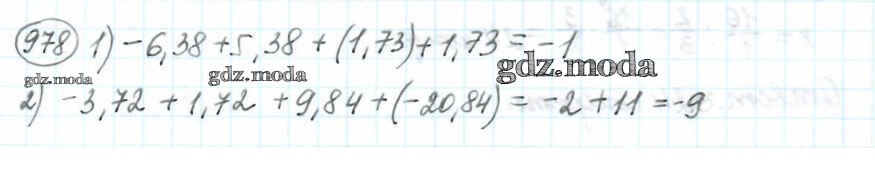 978 1) -6,38 + 5,38 + (1,73) + 1,73 = -1
gdz.moda gdz.moda gdz.moda
2) -3,72 + 1,72 + 9,84 + (-20,84) = -2 + 11 = -9